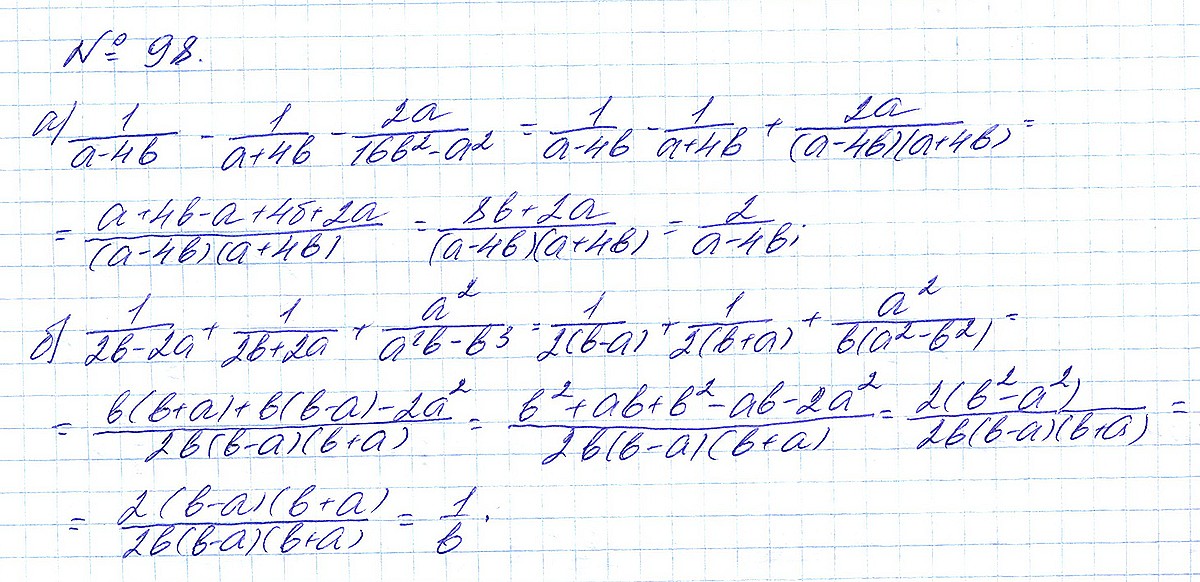 № 98.
а) 1/(a-4b) - 1/(a+4b) - 2a/(16b²-a²) = 1/(a-4b) - 1/(a+4b) + 2a/((a-4b)(a+4b)) =
= (a+4b-a+4б+2a)/((a-4b)(a+4b)) = (8b+2a)/((a-4b)(a+4b)) = 2/(a-4b);
б) 1/(2b-2a) + 1/(2b+2a) + a²/(a²b-b³) = 1/(2(b-a)) + 1/(2(b+a)) + a²/(b(a²-b²)) =
= (b(b+a)+b(b-a)-2a²)/(2b(b-a)(b+a)) = (b²+ab+b²-ab-2a²)/(2b(b-a)(b+a)) = 2(b²-a²)/(2b(b-a)(b+a)) =
= 2(b-a)(b+a)/(2b(b-a)(b+a)) = 1/b.